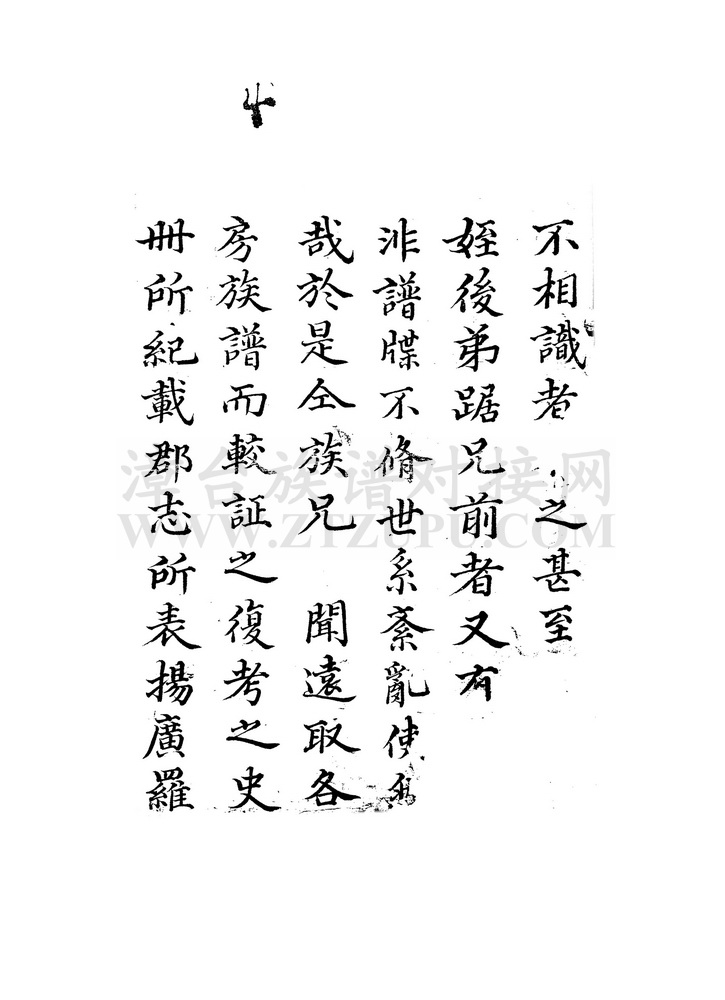 不相識者之甚至
姪後弟踞兄前者又有
非譜牒不脩世系紊亂使
哉於是仝族兄　聞遠取各
房族譜而較証之復考之史
冊所紀載郡志所表揚廣羅
漳台族谱对接网
WWW.ZTZUPU.COM